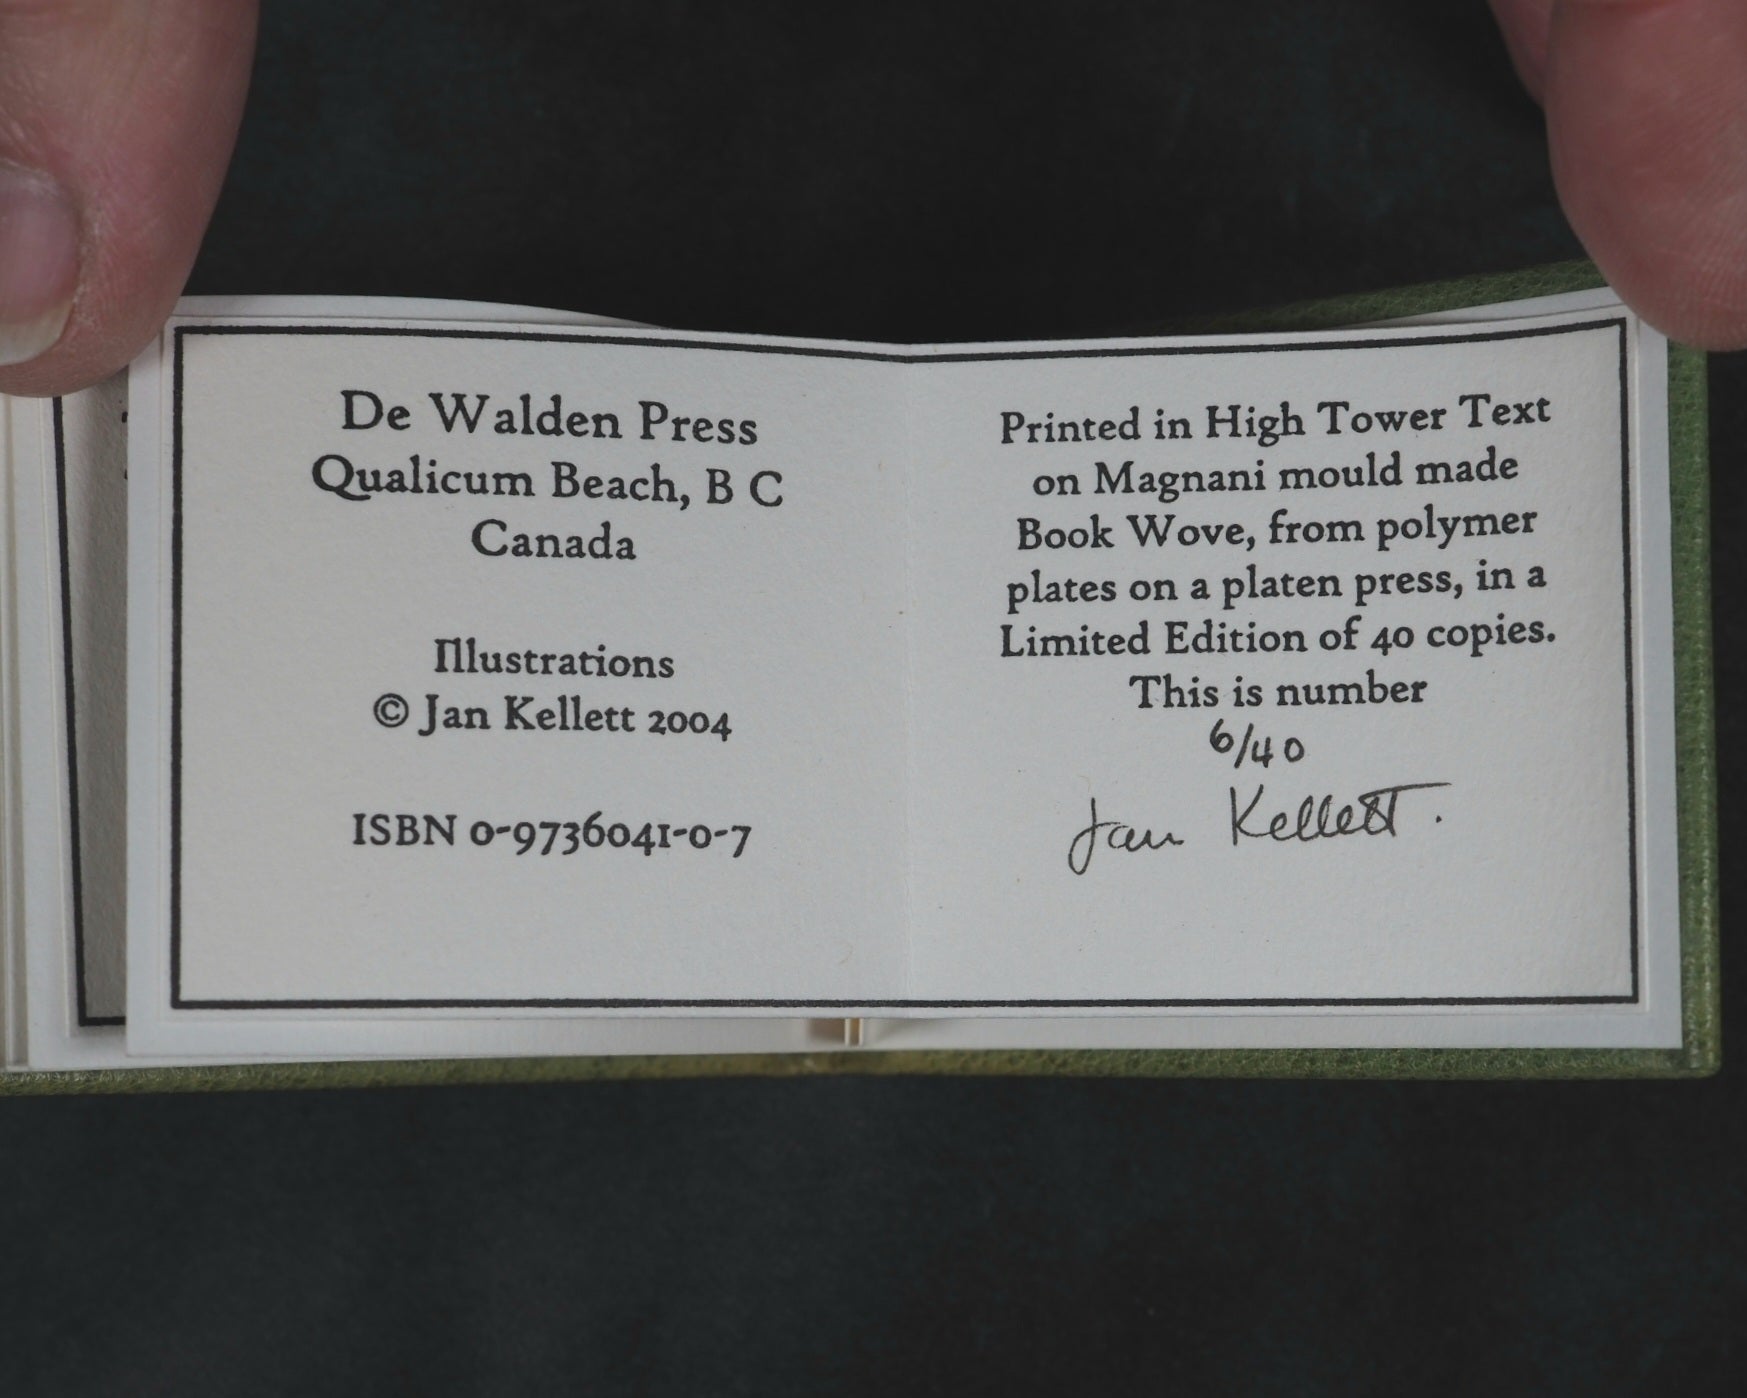 De Walden Press
Qualicum Beach, B C
Canada
Illustrations
© Jan Kellett 2004
ISBN 0-9736041-0-7
Printed in High Tower Text
on Magnani mould made
Book Wove, from polymer
plates on a platen press, in a
Limited Edition of 40 copies.
This is number
6/40
Jan Kellett.